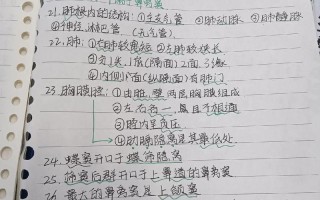 21. 肺根内的结构：①主支气管 ②肺动脉 ③肺静脉
④神经、淋巴管
22. 肺：①右肺较宽短 ②左肺较狭长
③一尖、一底（膈面）二面、三缘
④内侧面（纵膈面）有肺门
23. 胸膜腔：①由脏、壁两层胸膜组成
②左右各一，
③腔内呈负压
④肋膈隐窝是其最低处
24. 蝶窦开口于蝶筛隐窝
25. 筛窦后群开口于上鼻道的鼻窦
26. 最大的鼻窦是上颌窦